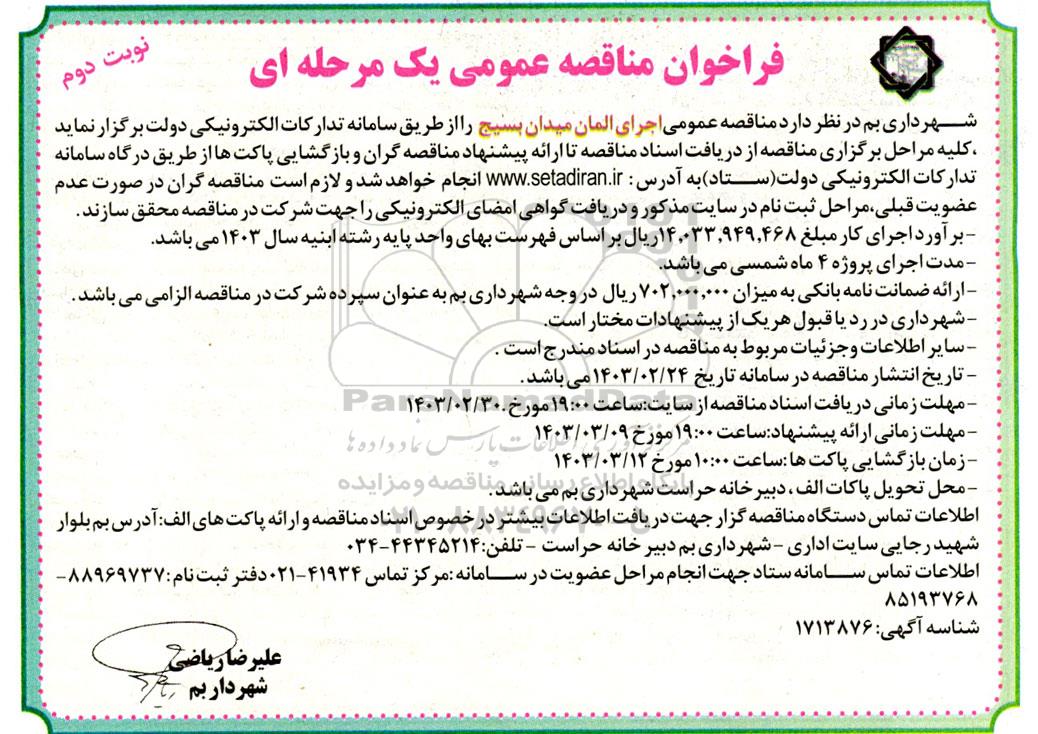 نوبت دوم
فراخوان مناقصه عمومی یک مرحله ای
شهرداری بم در نظر دارد مناقصه عمومی اجرای المان میدان بسیج را از طریق سامانه تدارکات الکترونیکی دولت برگزار نماید
،کلیه مراحل برگزاری مناقصه از دریافت اسناد مناقصه تا ارائه پیشنهاد مناقصه گران و بازگشایی پاکت ها از طریق درگاه سامانه
تدارکات الکترونیکی دولت(ستاد)به آدرس : www.setadiran.ir انجام خواهد شد و لازم است مناقصه گران در صورت عدم
عضویت قبلی،مراحل ثبت نام در سایت مذکور و دریافت گواهی امضای الکترونیکی را جهت شرکت در مناقصه محقق سازند.
-برآورد اجرای کار مبلغ ۱۴,۰۳۳,۹۴۹,۴۶۸ریال بر اساس فهرست بهای واحد پایه رشته ابنیه سال ۱۴۰۳ می باشد.
-مدت اجرای پروژه ۴ ماه شمسی می باشد.
-ارائه ضمانت نامه بانکی به میزان ۷۰۲,۰۰۰,۰۰۰ ریال در وجه شهرداری بم به عنوان سپرده شرکت در مناقصه الزامی می باشد .
-شهرداری در رد یا قبول هریک از پیشنهادات مختار است.
-سایر اطلاعات وجزئیات مربوط به مناقصه در اسناد مندرج است .
-تاریخ انتشار مناقصه در سامانه تاریخ ۱۴۰۳/۰۲/۲۴ می باشد.
-مهلت زمانی دریافت اسناد مناقصه از سایت:ساعت ۱۹:۰۰مورخ ۱۴۰۳/۰۲/۳۰.
-مهلت زمانی ارائه پیشنهاد:ساعت ۱۹:۰۰ مورخ ۱۴۰۳/۰۳/۰۹
-زمان بازگشایی پاکت ها :ساعت ۱۰:۰۰ مورخ ۱۴۰۳/۰۳/۱۲
-محل تحویل پاکات الف ، دبیرخانه حراست شهرداری بم می باشد.
اطلاعات تماس دستگاه مناقصه گزار جهت دریافت اطلاعات بیشتر در خصوص اسناد مناقصه و ارائه پاکت های الف:آدرس بم بلوار
شهید رجایی سایت اداری -شهرداری بم دبیر خانه حراست -تلفن:۴۴۳۴۵۲۱۴-۰۳۴
اطلاعات تماس سامانه ستاد جهت انجام مراحل عضویت در سامانه :مرکز تماس ۴۱۹۳۴-۰۲۱دفتر ثبت نام :۸۸۹۶۹۷۳۷-
۸۵۱۹۳۷۶۸
شناسه آگهی: ۱۷۱۳۸۷۶
علیرضا ریاضی
شهردار بم
ParsNamadData
پایگاه اطلاع رسانی مناقصه و مزایده